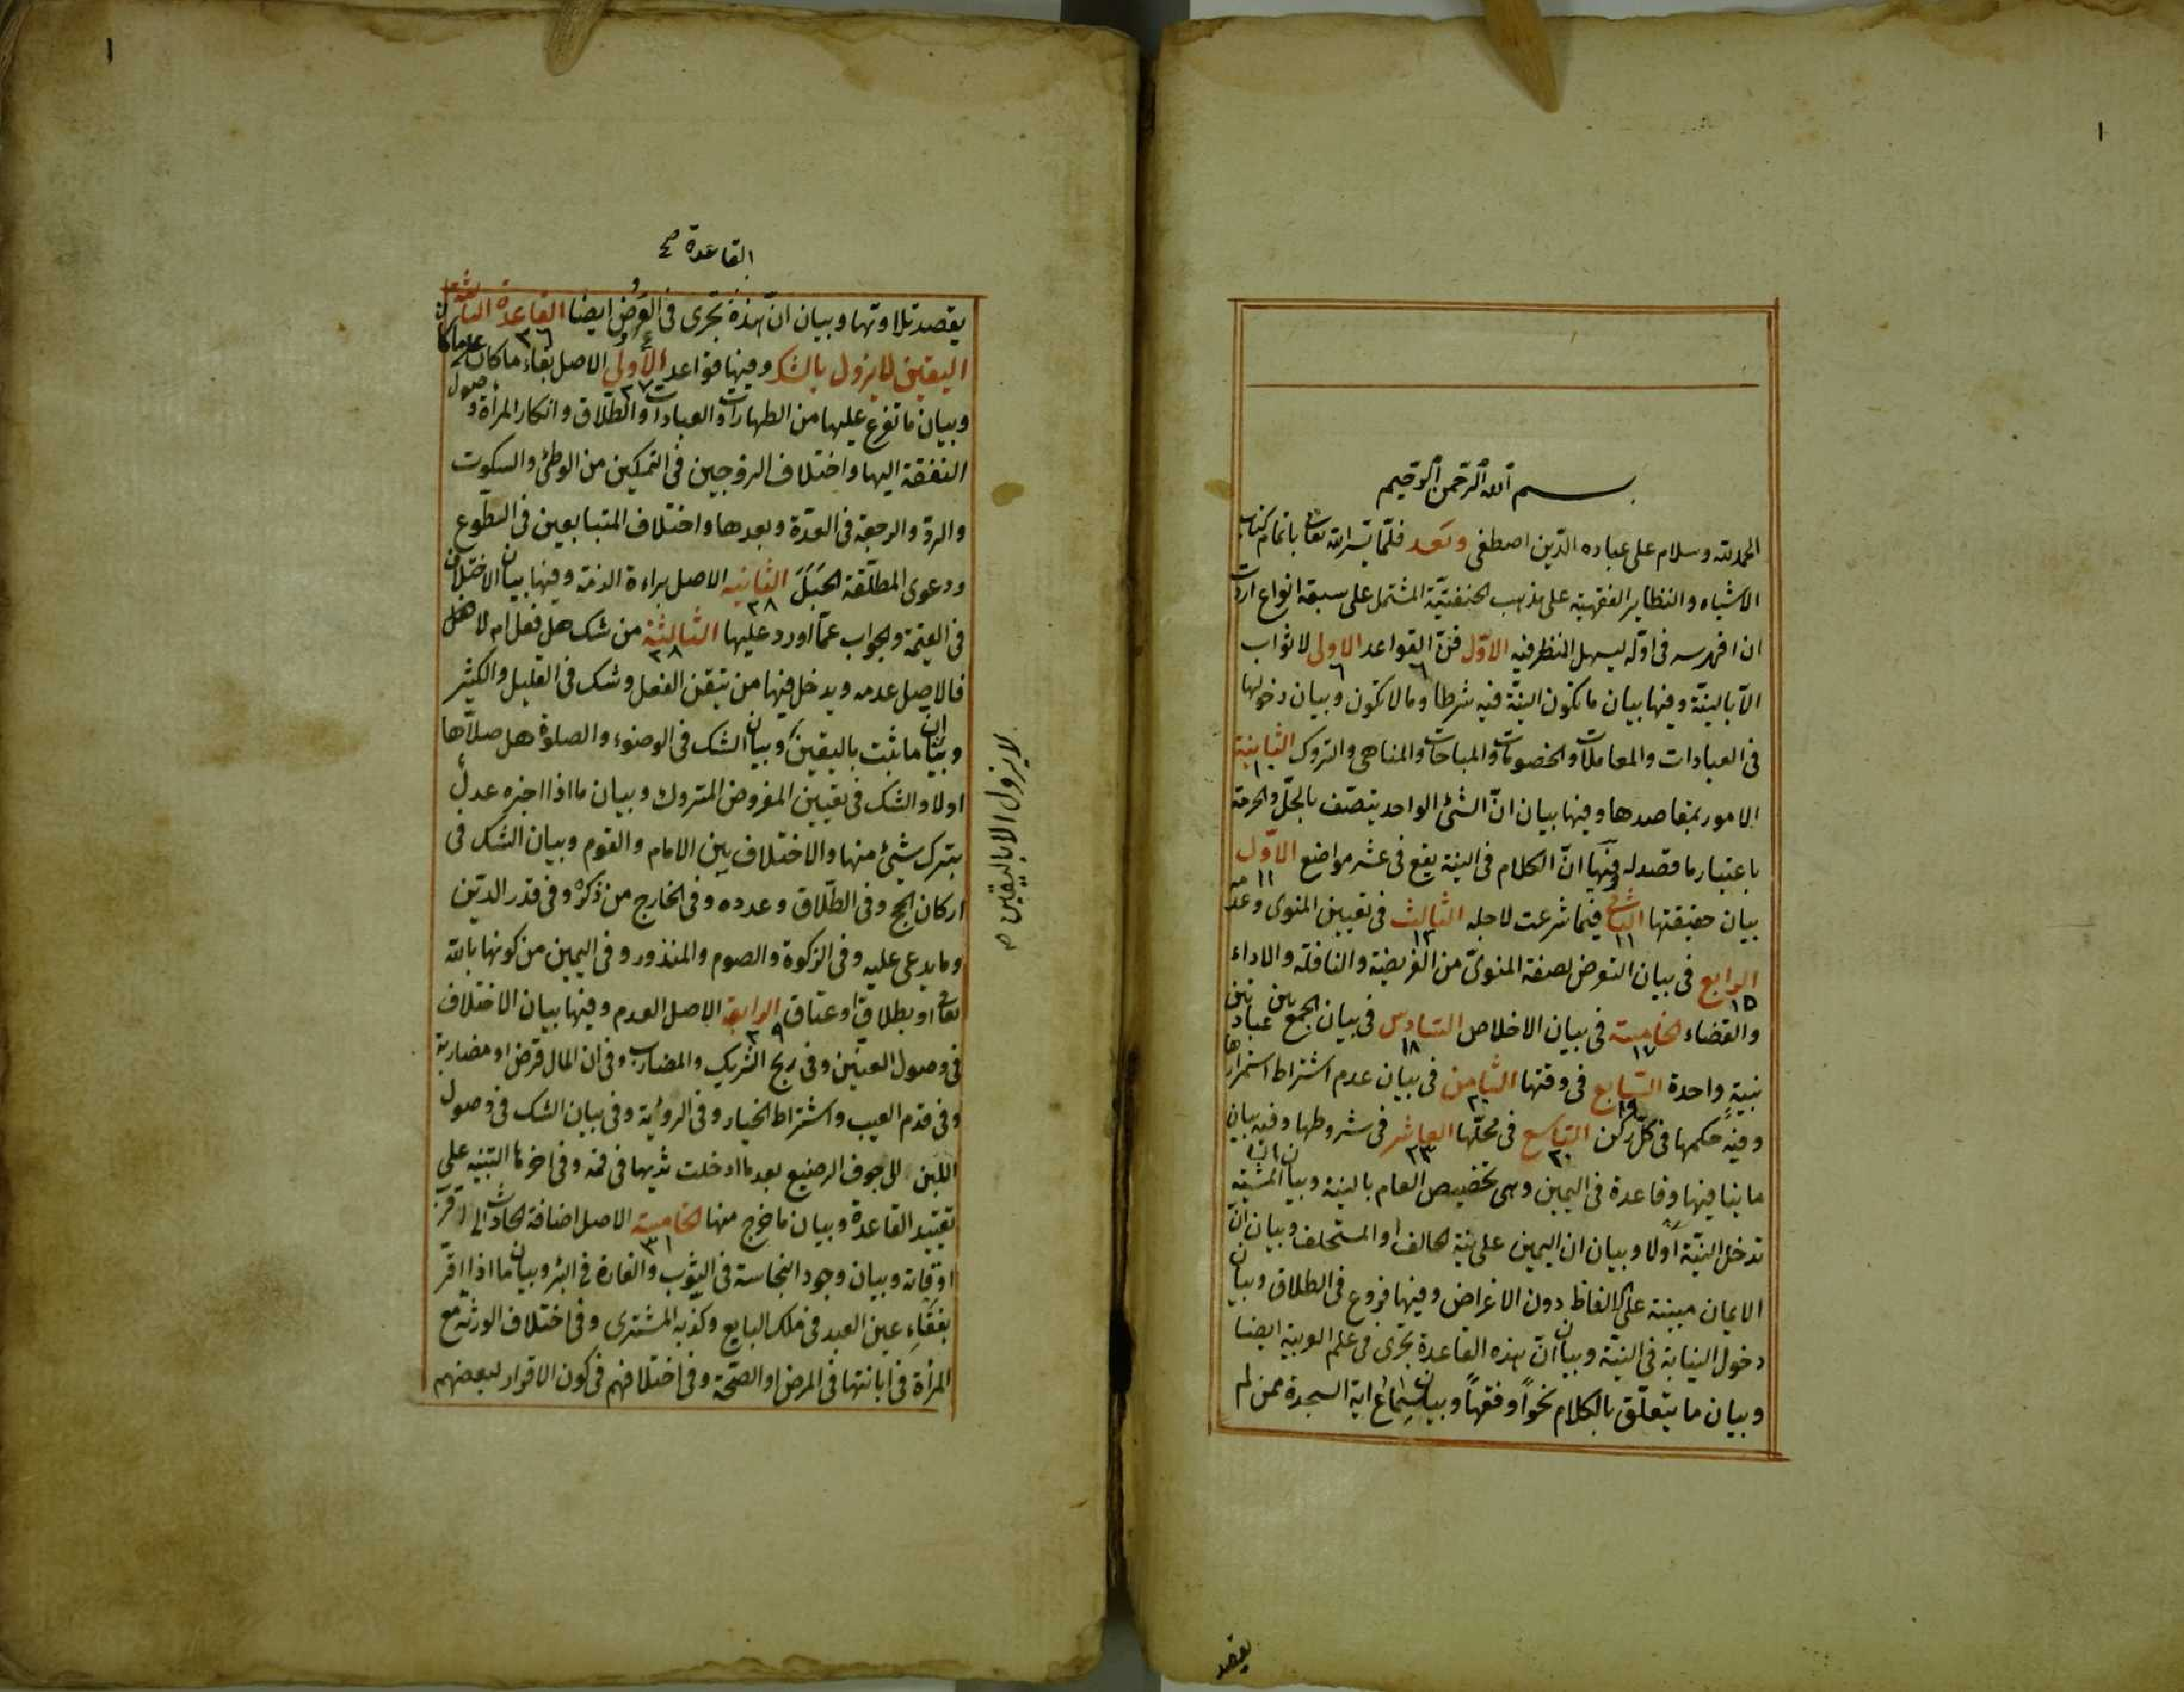 ١
بسم الله الرحمن الرحيم
الحمد لله وسلام على عباده الذين اصطفى وبعد فلما يسر الله تعالى باتمام كتاب
الاشباه والنظاير الفقهية على مذهب الحنفية المشتمل على سبعة انواع اردت
ان افهرسه في اوله ليسهل النظر فيه الاول فن القواعد الاولى لا ثواب
الا بالنية وفيها بيان ما تكون النية فيه شرطا وما لا تكون وبيان دخولها
في العبادات والمعاملات والخصومات والمباحات والمناهي والتروك الثانية
الامور بمقاصدها وفيها بيان ان الشئ الواحد يتصف بالحل والحرمة
باعتبار ما قصد له وفيها ان الكلام في النية يقع في عشر مواضع الاول
بيان حقيقتها الثاني فيما شرعت لاجله الثالث في تعيين المنوي وعدمه
الرابع في بيان التعرض لصفة المنوي من الفريضة والنافلة والاداء
والقضاء الخامسة في بيان الاخلاص السادس في بيان الجمع بين عبادتين
بنية واحدة السابع في وقتها الثامن في بيان عدم اشتراط استمرارها
وفيه حكمها في كل ركن التاسع في محلها العاشر في شروطها وفيه بيان
ما ينافيها وقاعدة في اليمين وهي تخصيص العام بالنية وبيان ان المشيئة
تدخل النية اولا وبيان ان اليمين على نية الحالف او المستحلف وبيان ان
الايمان مبنية على الالفاظ دون الاغراض وفيها فروع في الطلاق وبيان
دخول النيابة في النية وبيان ان هذه القاعدة تجرى في علم العربية ايضا
وبيان ما يتعلق بالكلام نحوا وفقها وبيان سماع اية السجدة ممن لم
يقصد
١
القاعدة صح
يقصد تلاوتها وبيان ان هذه تجرى في العروض ايضا القاعدة الثالثة
اليقين لا يزول بالشك وفيها قواعد الاولى الاصل بقاء ما كان على ما كان
وبيان ما تفرع عليها من الطهارات والعبادات والطلاق وانكار المرأة وصول
النفقة اليها واختلاف الزوجين في التمكين من الوطئ والسكوت
والرد والرجعة في العدة وبعدها واختلاف المتبايعين في التطوع
ودعوى المطلقة الحبل الثانية الاصل براءة الذمة وفيها بيان الاختلاف
في القيمة والجواب عما اورد عليها الثالثة من شك هل فعل ام لا هل
فالاصل عدمه ويدخل فيها من تيقن الفعل وشك في القليل والكثير
وبيان ان ما ثبت باليقين وبيان الشك في الوضوء والصلوة هل صلاها
اولا والشك في تعيين المفروض المتروك وبيان ما اذا اخبره عدل
بترك شيئ منها والاختلاف بين الامام والقوم وبيان الشك في
اركان الحج وفي الطلاق وعدده وفي الخارج من ذكره وفي قدر الدين
وما يدعى عليه وفي الزكوة والصوم والمنذور وفي اليمين من كونها بالله
تعالى او بطلاق او عتاق الرابعة الاصل العدم وفيها بيان الاختلاف
في وصول العنين وفي ربح الشريك والمضارب وفي ان المال قرض او مضاربة
وفي قدم العيب واشتراط الخيار وفي الرؤية وفي بيان الشك في وصول
اللبن الى جوف الرضيع بعد ما ادخلت ثديها في فمه وفي اخرها التنبيه على
تقييد القاعدة وبيان ما خرج منها الخامسة الاصل اضافة الحادث الى اقرب
اوقاته وبيان وجود النجاسة في الثوب والفارة في البئر وبيان ما اذا اقر
بفقاء عين العبد في ملك البايع وكذبه المشترى وفي اختلاف الورثة مع
المرأة في ابانتها في المرض او الصحة وفي اختلافهم في كون الاقرار لبعضهم
لا يزول الا باليقين صح